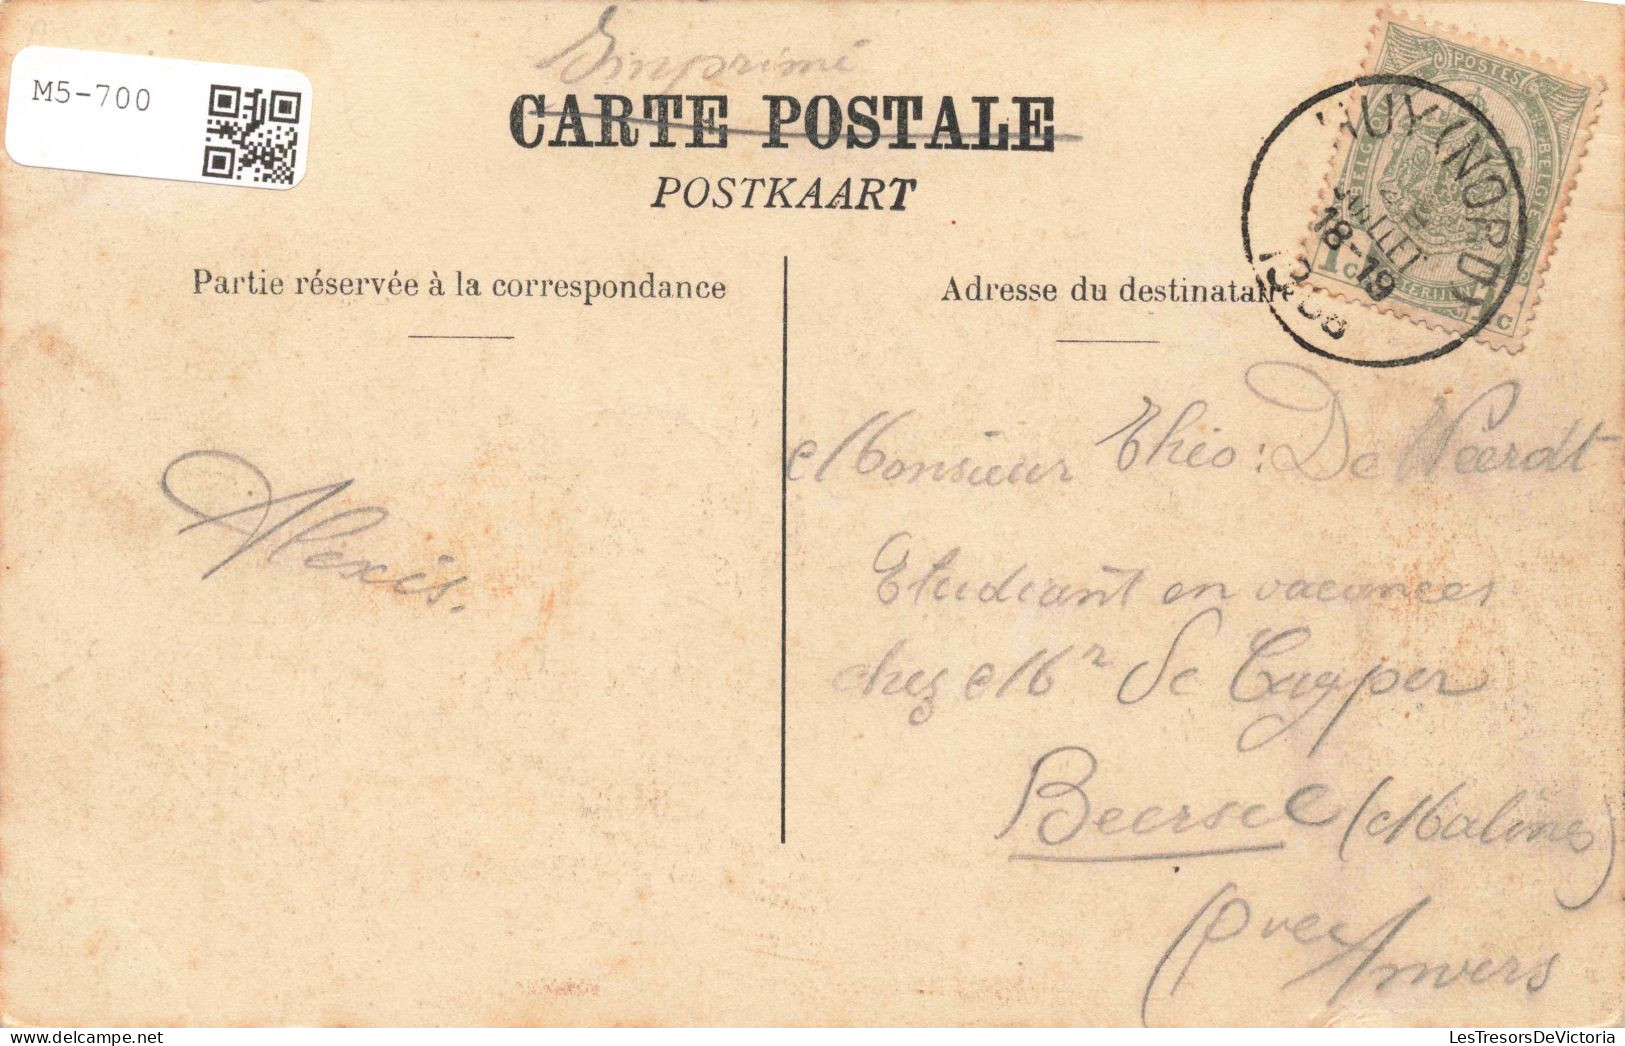 M5-700
Imprimé
CARTE POSTALE
POSTKAART
Partie réservée à la correspondance
Adresse du destinataire
HUY (NORD)
JUILLET
18-19
POSTES
1c
Monsieur Théo: De Weerdt
Etudiant en vacances
chez Mr De Cuyper
Beersel (Malines)
(Prce Anvers
Alexis.
LesTresorsDeVictoria